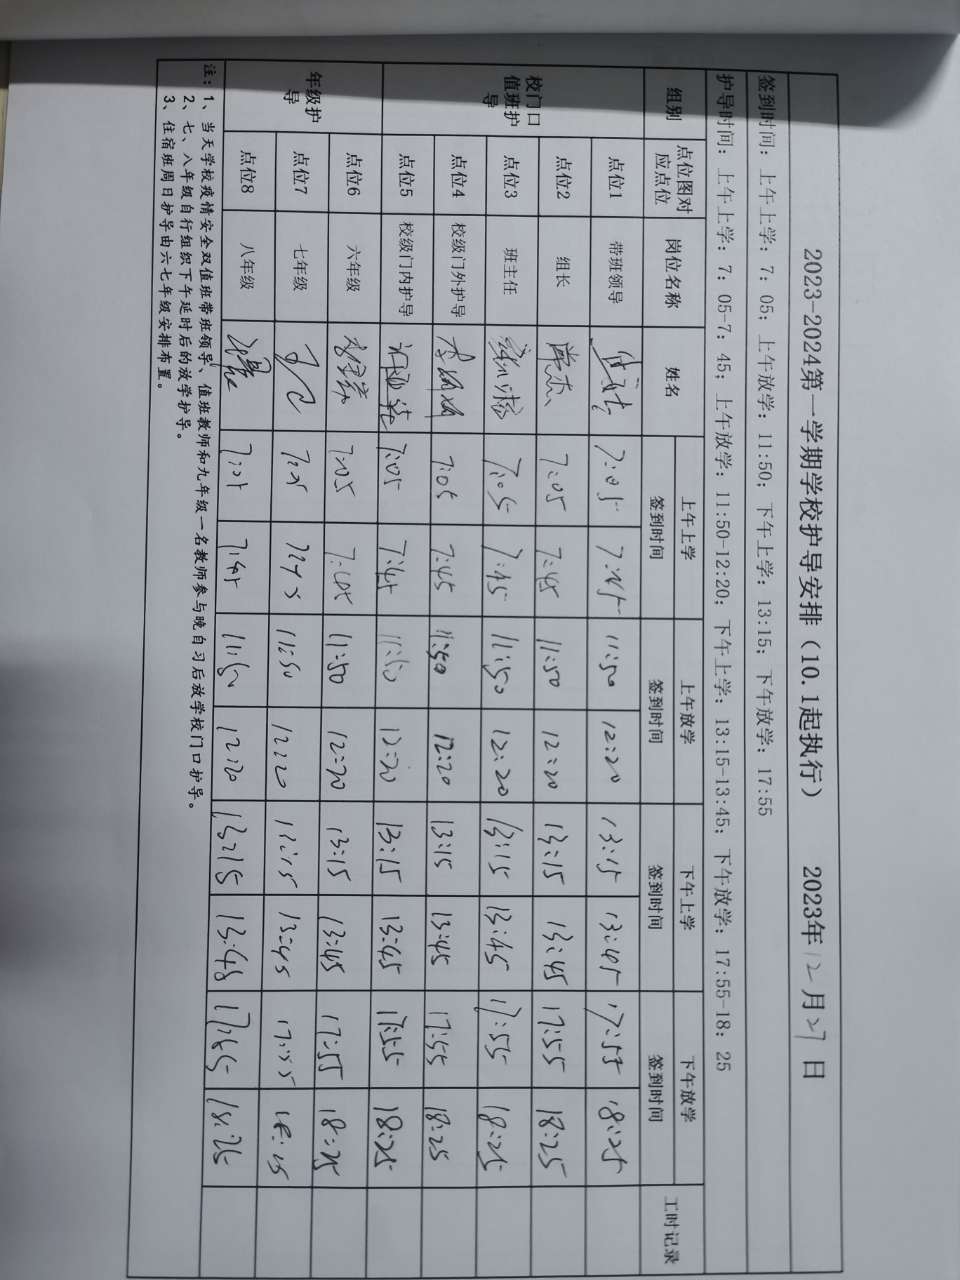 2023-2024第一学期学校护导安排（10.1起执行） 2023年12月27日
签到时间：上午上学：7：05；上午放学：11:50；下午上学：13:15；下午放学：17:55
护导时间：上午上学：7：05-7：45；上午放学：11:50-12:20；下午上学：13:15-13:45；下午放学：17:55-18：25
组别 点位图对应点位 岗位名称 姓名 上午上学签到时间 上午放学签到时间 下午上学签到时间 下午放学签到时间 工时记录
校门口值班护导 点位1 带班领导 7:05 7:45 11:50 12:20 13:15 13:45 17:55 18:25
点位2 组长 7:05 7:45 11:50 12:20 13:15 13:45 17:55 18:25
点位3 班主任 7:05 7:45 11:50 12:20 13:15 13:45 17:55 18:25
点位4 校级门外护导 7:05 7:45 11:50 12:20 13:15 13:45 17:55 18:25
点位5 校级门内护导 7:05 7:45 11:50 12:20 13:15 13:45 17:55 18:25
年级护导 点位6 六年级 7:05 7:45 11:50 12:20 13:15 13:45 17:55 18:25
点位7 七年级 7:05 7:45 11:50 12:20 13:15 13:45 17:55 18:25
点位8 八年级 7:05 7:45 11:50 12:20 13:15 13:45 17:55 18:25
注：1、当天学校疫情安全双值班带班领导、值班教师和九年级一名教师参与晚自习后放学校门口护导。
2、七、八年级自行组织下午延时后的放学护导。
3、住宿班周日护导由六七年级安排布置。